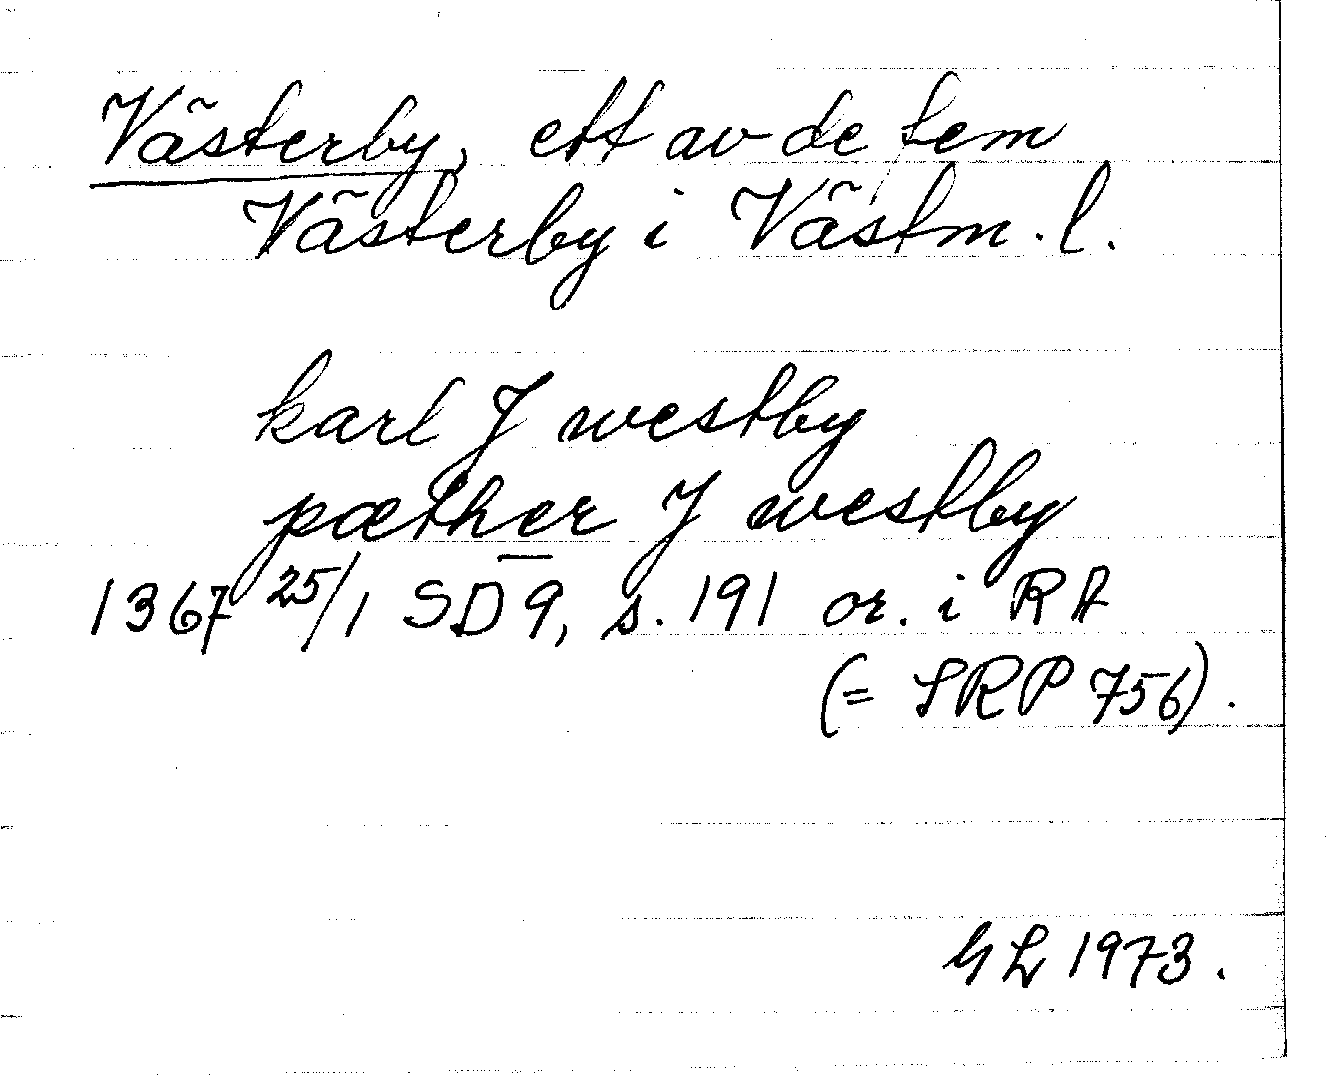 Västerby, ett av de fem
Västerby i Västm. l.
karl J westby
pæther J westby
1367 25/1 SD 9, s. 191 or. i RA
(= SRP 756).
GL 1973.